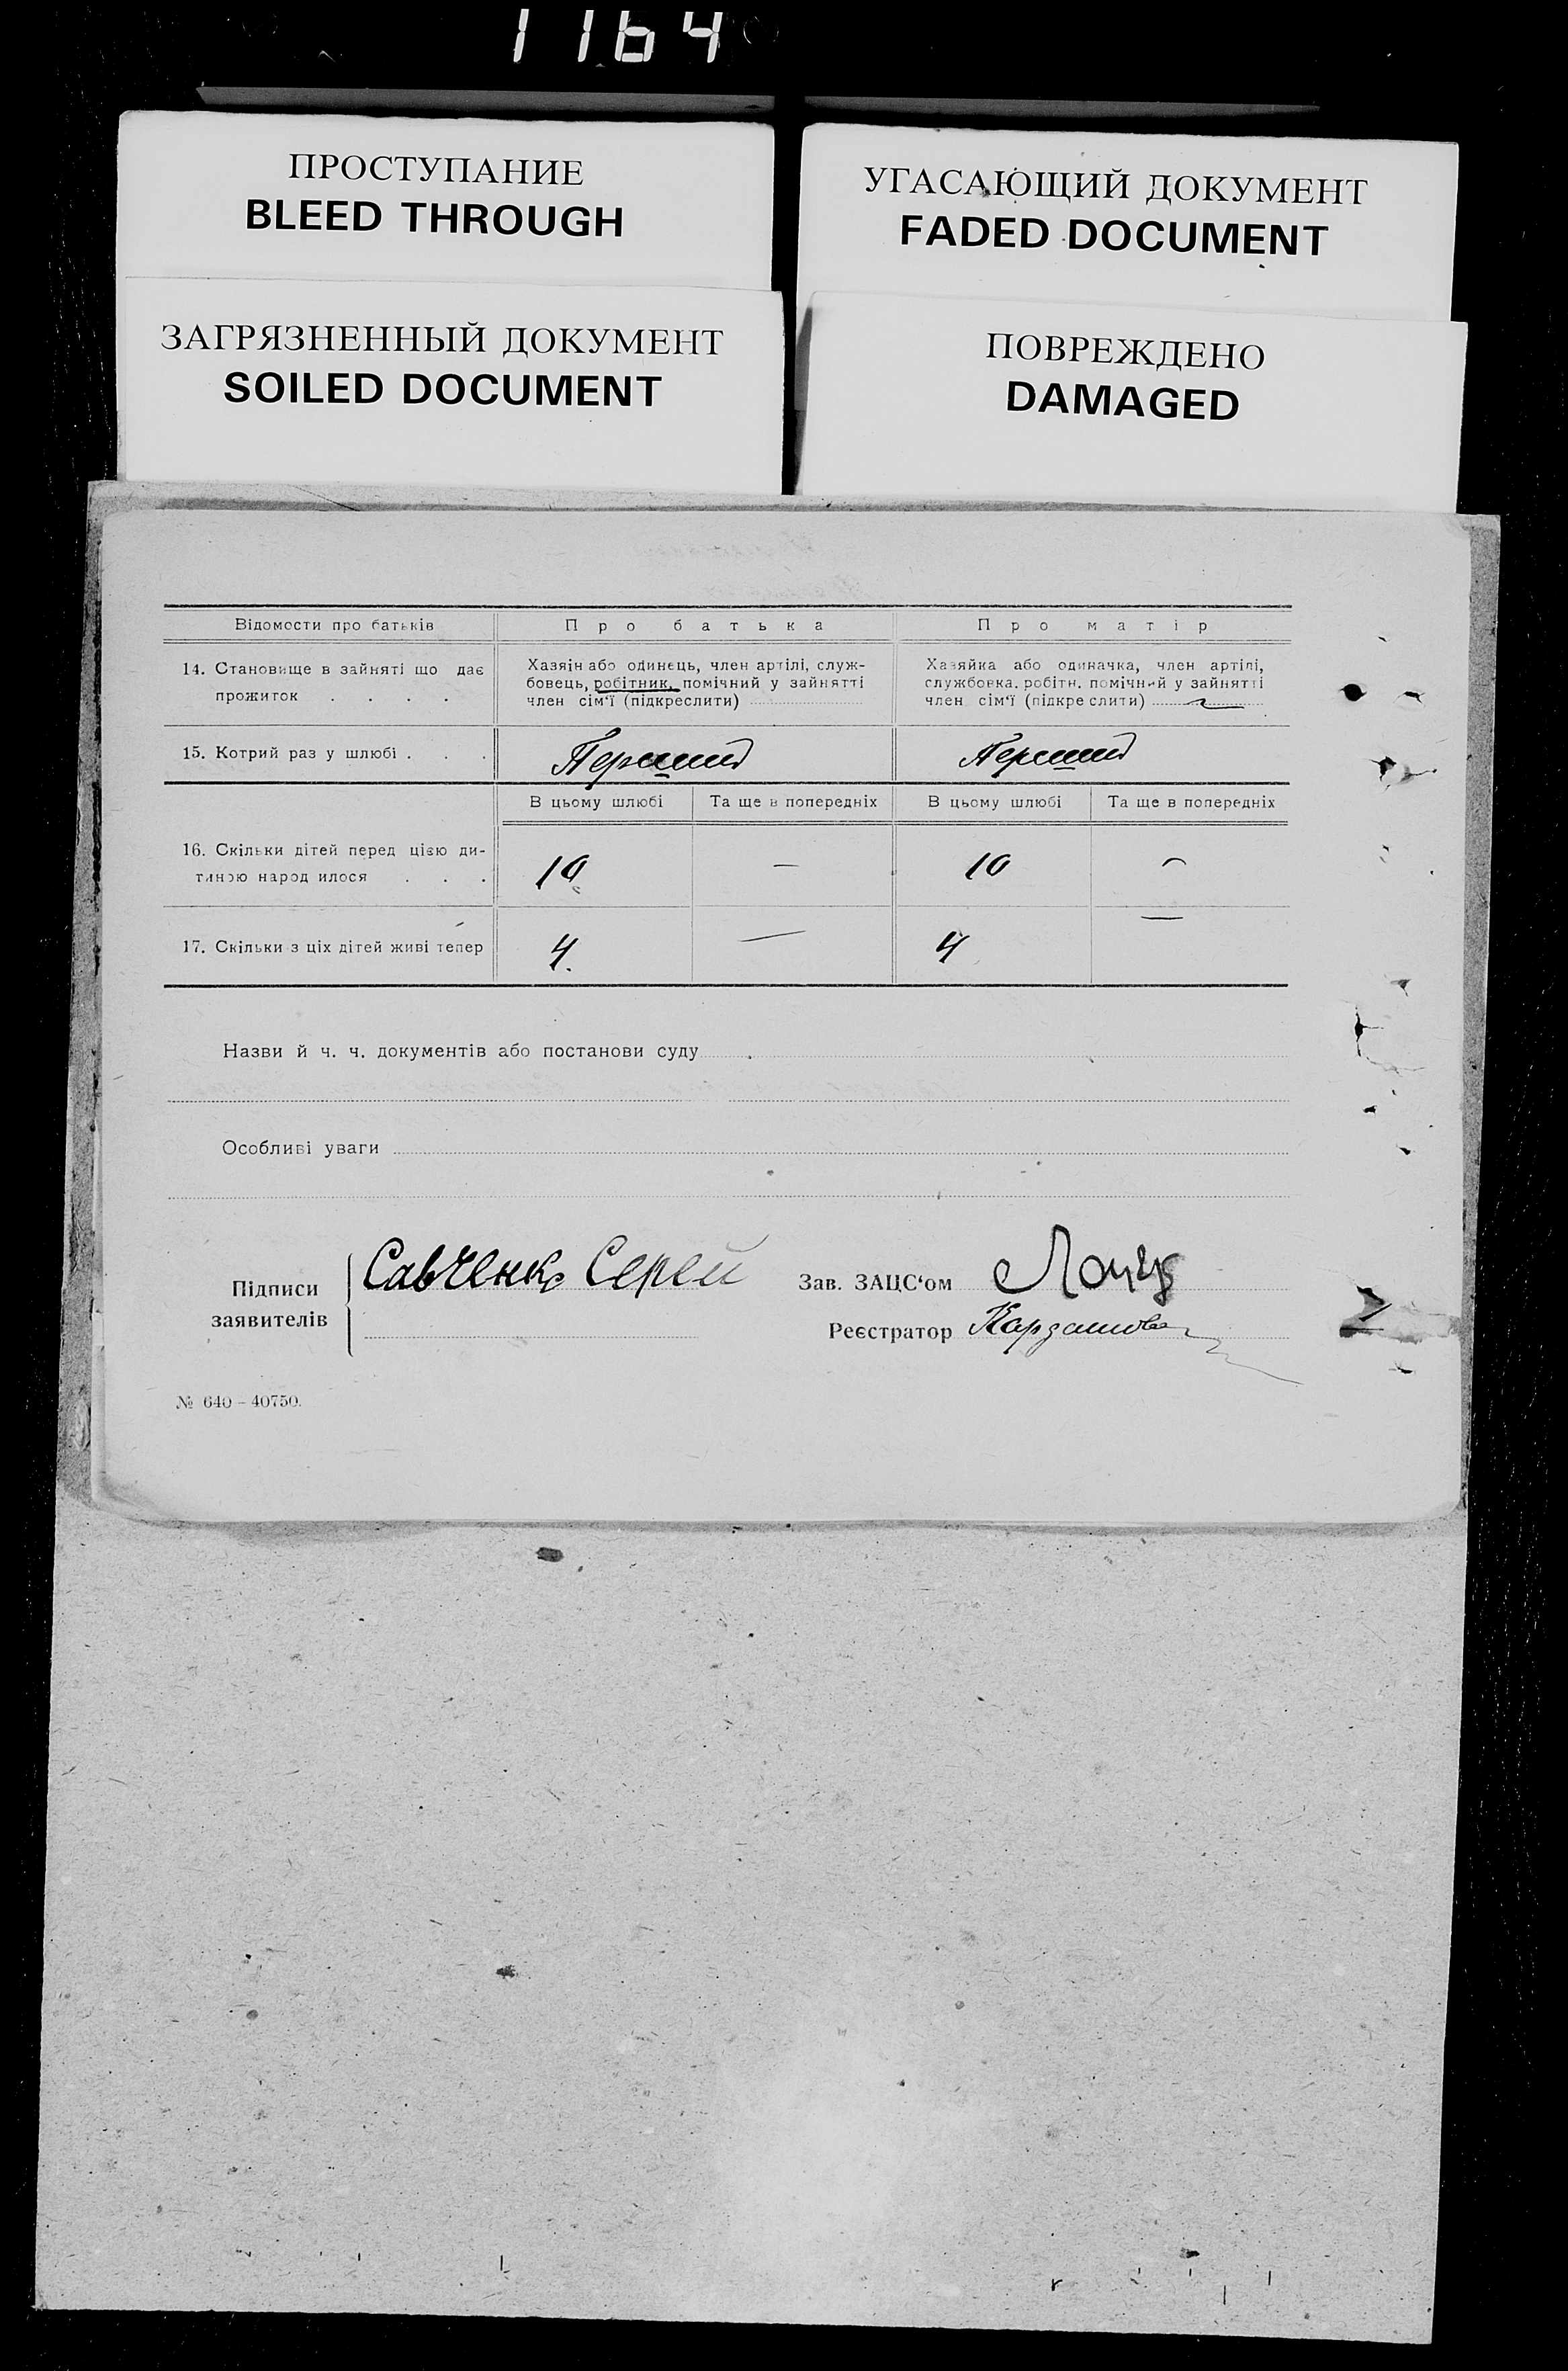 1164
ПРОСТУПАНИЕ
BLEED THROUGH
УГАСАЮЩИЙ ДОКУМЕНТ
FADED DOCUMENT
ЗАГРЯЗНЕННЫЙ ДОКУМЕНТ
SOILED DOCUMENT
ПОВРЕЖДЕНО
DAMAGED
Відомости про батьків Про батька Про матір
14. Становище в зайняті що дає
прожиток . . . .
Хазяїн або одинець, член артілі, служ-
бовець, робітник, помічний у зайнятті
член сім‘ї (підкреслити)
Хазяйка або одиначка, член артілі,
службовка. робітн. помічний у зайнятті
член сім‘ї (підкреслити)
15. Котрий раз у шлюбі . . . Перший Перший
В цьому шлюбі Та ще в попередніх В цьому шлюбі Та ще в попередніх
16. Скільки дітей перед цією ди-
тиною народилося . . . 10 — 10 —
17. Скільки з ціх дітей живі тепер 4. — 4 —
Назви й ч. ч. документів або постанови суду
Особливі уваги
Підписи
заявителів
Савченко Сергей
Зав. ЗАЦС‘ом
Реєстратор
№ 640 – 40750.